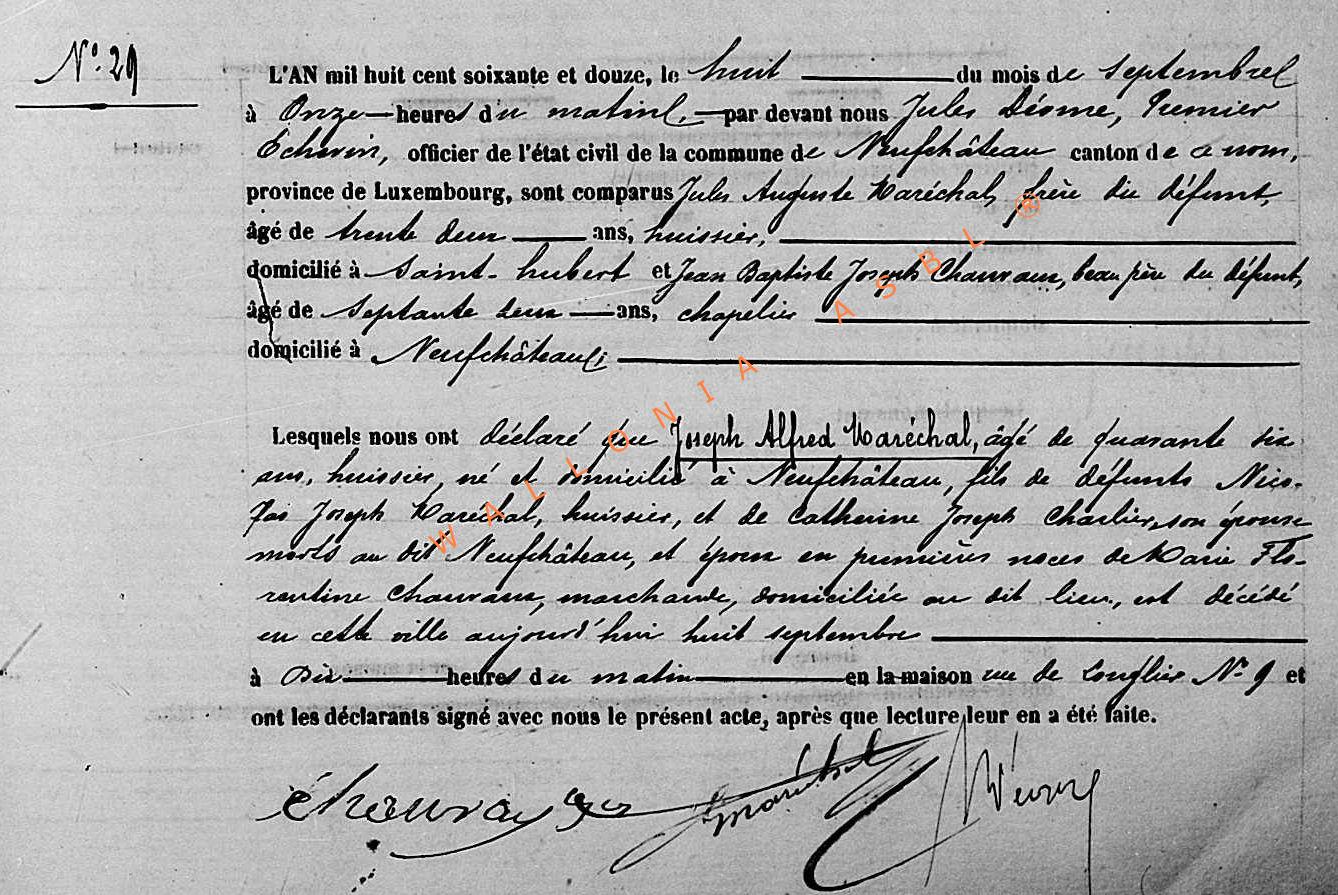 N° 29
L'AN mil huit cent soixante et douze, le huit du mois de septembre
à Onze heures du matin, par devant nous Jules Désme, Premier
Echevin, officier de l'état civil de la commune de Neufchâteau canton de ce nom,
province de Luxembourg, sont comparus Jules Auguste Maréchal, frère du défunt,
âgé de trente deux ans, huissier,
domicilié à Saint-hubert et Jean Baptiste Joseph Chauvaux, beau père du défunt,
âgé de septante deux ans, chapelier
domicilié à Neufchâteau;
Lesquels nous ont déclaré que Joseph Alfred Maréchal, âgé de quarante six
ans, huissier, né et domicilié à Neufchâteau, fils de défunts Nico-
las Joseph Maréchal, huissier, et de Catherine Joseph Charlier, son épouse
morts au dit Neufchâteau, et époux en premières noces de Marie Flo-
rentine Chauvaux, marchande, domiciliée au dit lieu, est décédé
en cette ville aujourd'hui huit septembre
à Dix heures du matin en la maison rue de Longlier N° 9 et
ont les déclarants signé avec nous le présent acte, après que lecture leur en a été faite.
Chauvaux J Maréchal
WALLONIA ASBL ®